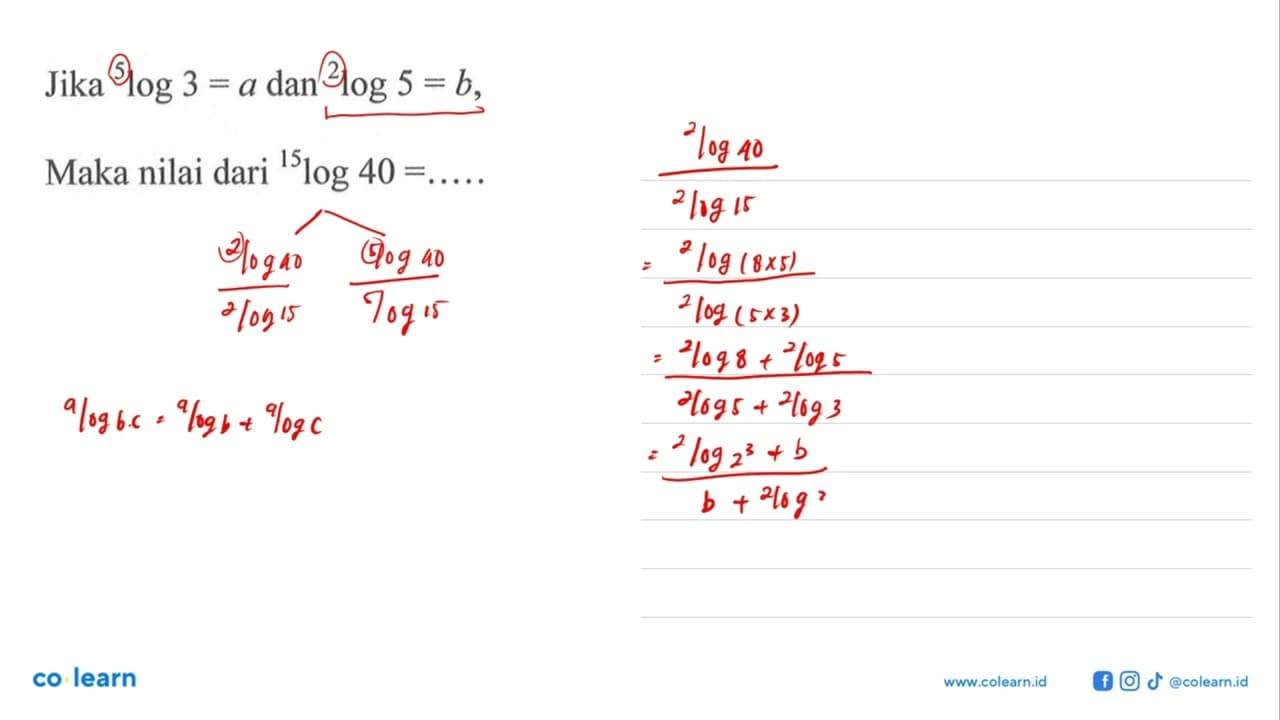 Jika ⁵log 3 = a dan ²log 5 = b,
Maka nilai dari ¹⁵log 40 =.....
²log 40 / ²log 15
⁵log 40 / ⁵log 15
ᵃlog b.c = ᵃlog b + ᵃlog c
²log 40
²log 15
= ²log (8x5)
²log (5x3)
= ²log 8 + ²log 5
²log 5 + ²log 3
= ²log 2³ + b
b + ²log
co learn
www.colearn.id
@colearn.id